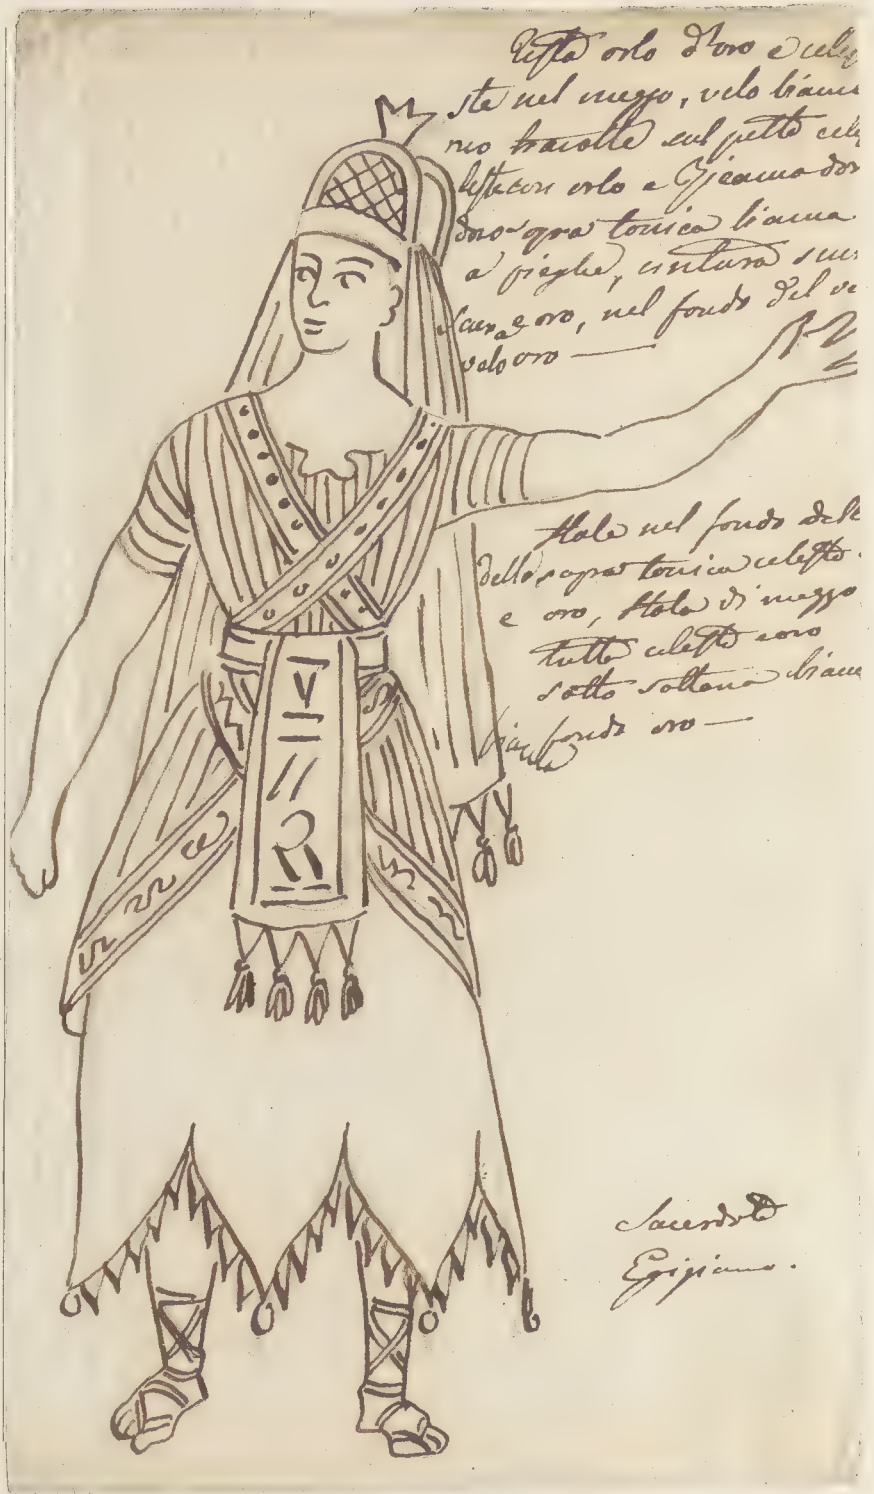 Testa orlo d'oro e cele
ste nel mezzo, velo bianco
sul petto cele
leste con orlo e
d'oro sopra tonica bianca
a pieghe, cintura
e oro, nel fondo del ve
velo oro —
Stola nel fondo dell
della sopra tonica celeste
e oro, Stola di mezzo
tutta celeste e oro
sotto sottana bianca
bianca fondo oro —
Sacerdote
Egiziano.